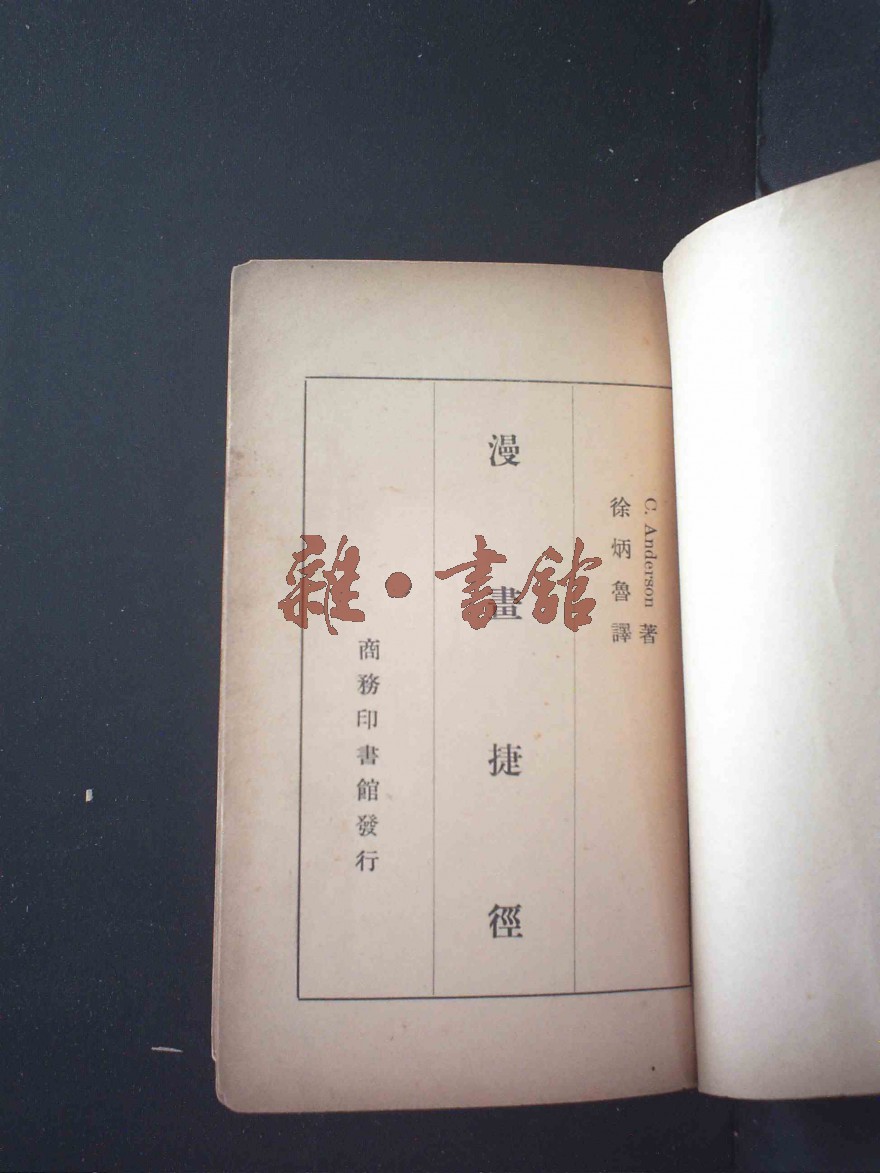 C. Anderson 著
徐炳魯譯
漫畫捷徑
商務印書館發行
雜·書館